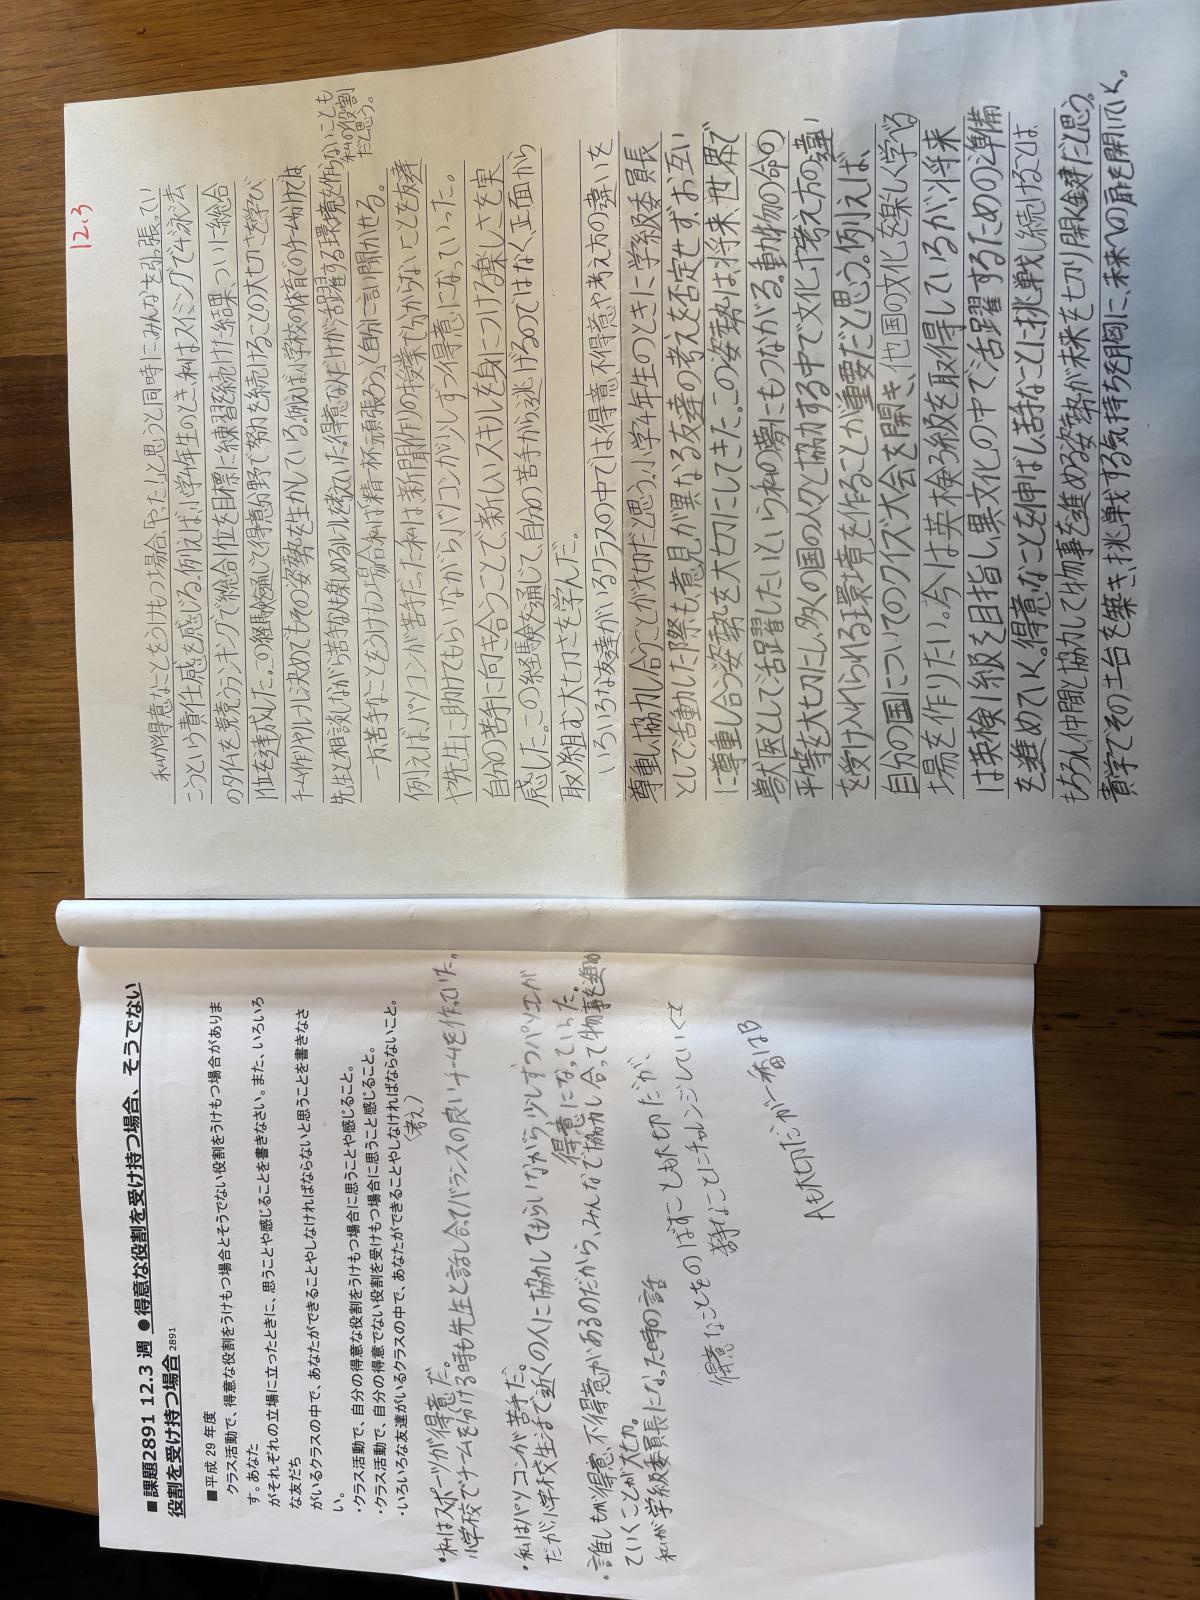 ■課題2891 12.3 週 ●得意な役割を受け持つ場合、そうでない
役割を受け持つ場合 2891
■平成 29 年度
クラス活動で、得意な役割をうけもつ場合とそうでない役割をうけもつ場合がありま
す。あなた
がそれぞれの立場に立ったときに、思うことや感じることを書きなさい。また、いろいろ
な友だち
がいるクラスの中で、あなたができることやしなければならないと思うことを書きなさ
い。
・クラス活動で、自分の得意な役割をうけもつ場合に思うことや感じること。
・クラス活動で、自分の得意でない役割を受けもつ場合に思うこと感じること。
・いろいろな友達がいるクラスの中で、あなたができることやしなければならないこと。
(考え)
・私はスポーツが得意だ。
小学校でチームを分ける時も先生と話し合ってバランスの良いチームを作っていた。
・私はパソコンが苦手だ。
だが小学校生活で近くの人に協力してもらいながら少しずつパソコンが
得意になっていった。
・誰しもが得意、不得意があるのだから、みんなで協力し合って物事を進め
ていくことが大切。
私が学級委員長になった時の話
得意なことをのばすことも大切だが、
苦手なことにチャレンジしていくと
Aも大切だが一番はB
12.3
私が得意なことをうけもつ場合、「やった」と思うと同時にみんなを引っ張ってい
こうという責任感を感じる。例えば、小学年生のとき、私はスイミングで4泳法
のタイムを競うランキングで総合1位を目標に練習を続けた結果、ついに総合
1位を達成した。この経験を通じて得意分野で努力を続けることの大切さを学び
チーム作りやルール決めでもその姿勢を生かしている。例えば、小学校の体育でのチーム分けでは
先生と相談しながら苦手な子も楽しめるルールを考えた。得意な人だけが活躍する環境を作らないことも
私の役割
だと思う。
一方、苦手なことをうけもつ場合、私は「精一杯頑張ろう」と自分に言い聞かせる。
例えば、パソコンが苦手だった私は、新聞作りの授業で分からないことを友達
や先生に助けてもらいながら、パソコンが少しずつ得意になっていった。
自分の苦手に向き合うことで新しいスキルを身につける楽しさを実
感した。この経験を通じて、自分の苦手から逃げるのではなく、正面から
取り組む大切さを学んだ。
いろいろな友達がいるクラスの中では得意、不得意や考え方の違いを
尊重し、協力し合うことが大切だと思う。小学4年生のときに学級委員長
として活動した際も、意見が異なる友達の考えを否定せず、お互い
に尊重し合う姿勢を大切にしてきた。この姿勢は、将来、世界で
獣医として活躍したいという私の夢にもつながる。動物の命の
平等を大切にし、多くの国の人々と協力する中で文化や考え方の違い
を受け入れられる環境を作ることが重要だと思う。例えば、
自分の国についてのクイズ大会を開き、他国の文化を楽しく学べる
場を作りたい。今は英検3級を取得しているが、将来
は英検1級を目指し、異文化の中で活躍するための準備
を進めていく。得意なことを伸ばし、苦手なことに挑戦し続けることは
もちろん、仲間と協力して物事を進める姿勢が未来を切り開く鍵だと思う。
貴学でその土台を築き、挑戦する気持ちを胸に、未来への扉を開いていく。